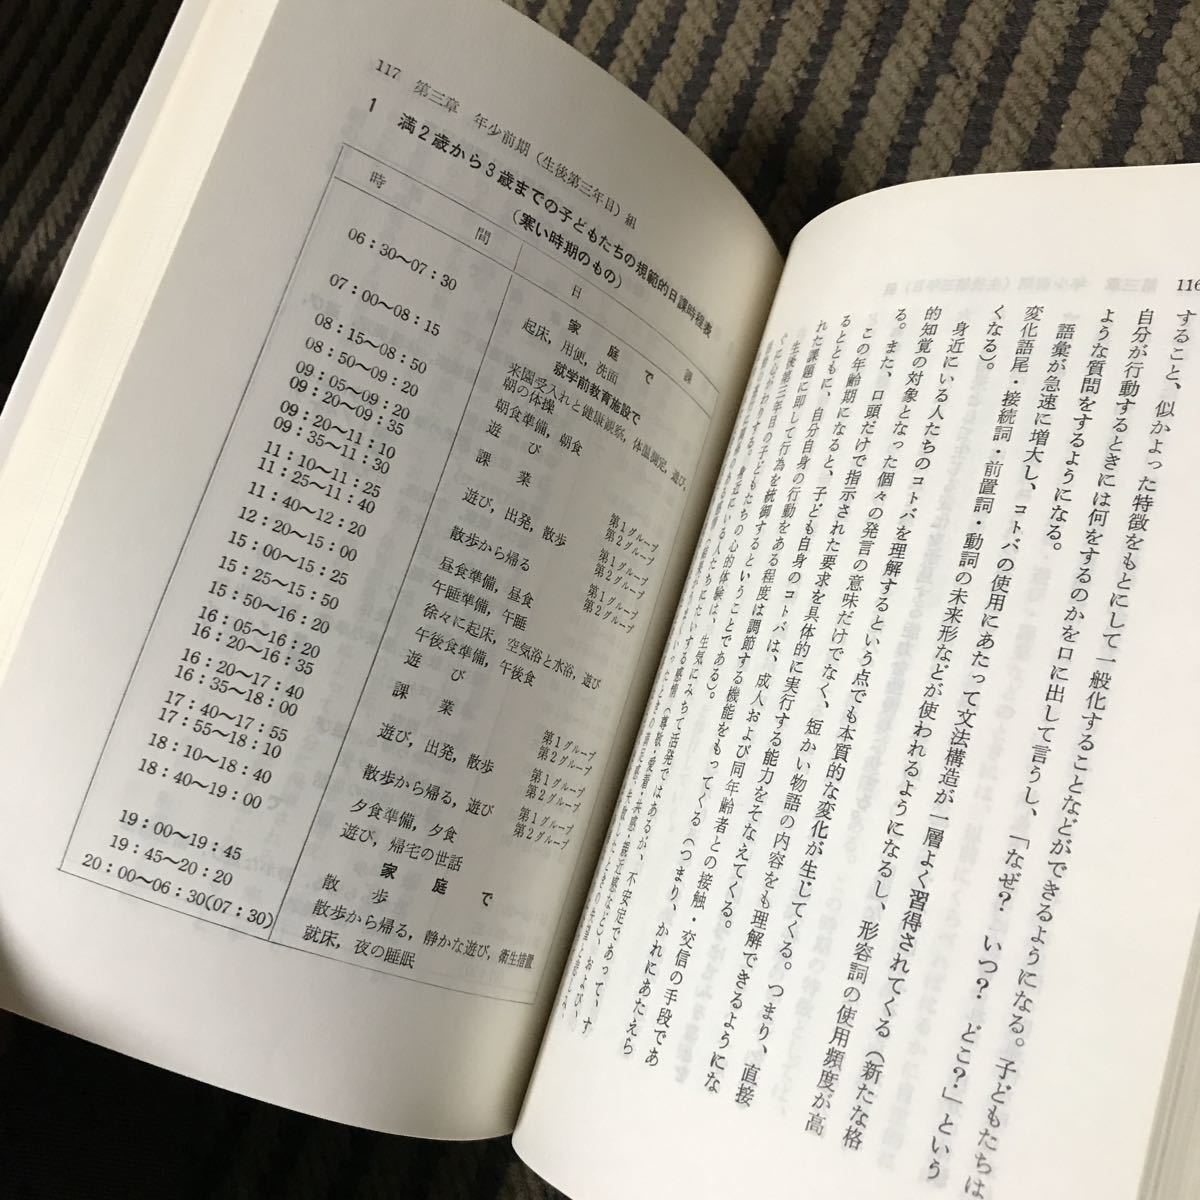 116
すること、似かよった特徴をもとにして一般化することなどができるようになる。子どもたちは
自分が行動するときには何をするのかを口に出して言うし、「なぜ？ いつ？ どこ？」という
ような質問をするようになる。
語彙が急速に増大し、コトバの使用にあたって文法構造が一層よく習得されてくる（新たな格
変化語尾・接続詞・前置詞・動詞の未来形などが使われるようになるし、形容詞の使用頻度が高
くなる）。
身近にいる人たちのコトバを理解するという点でも本質的な変化が生じてくる。つまり、直接
的知覚の対象となった個々の発言の意味だけでなく、短かい物語の内容をも理解できるようにな
る。また、口頭だけで指示された要求を具体的に実行する能力をそなえてくる。
この年齢期になると、子ども自身のコトバは、成人および同年齢者との接触・交信の手段であ
るとともに、自分自身の行動をある程度は調節する機能をもってくる（つまり、かれにあたえら
れた課題に即して行為を統御するということである）。
生後第三年目の子どもたちの心的体験は、生気にみちて活発ではあるが、不安定であって、す
ぐに心がわりする。身近にいる人たちにたいする感情
117 第三章 年少前期（生後第三年目）組
1 満2歳から3歳までの子どもたちの規範的日課時程表
（寒い時期のもの）
時 間 日 課
家 庭 で
06：30～07：30 起床，用便，洗面
就学前教育施設で
07：00～08：15 来園受入れと健康観察，体温測定，遊び，
朝の体操
08：15～08：50 朝食準備，朝食
08：50～09：20 遊 び
09：05～09：20 課 業 第1グループ
09：20～09：35 第2グループ
09：20～11：10 遊び，出発，散歩 第1グループ
09：35～11：30 第2グループ
11：10～11：25 散歩から帰る 第1グループ
11：25～11：40 第2グループ
11：40～12：20 昼食準備，昼食
12：20～15：00 午睡準備，午睡
15：00～15：25 徐々に起床，空気浴と水浴，遊び
15：25～15：50 午後食準備，午後食
15：50～16：20 遊 び
16：05～16：20 課 業 第1グループ
16：20～16：35 第2グループ
16：20～17：40 遊び，出発，散歩 第1グループ
16：35～18：00 第2グループ
17：40～17：55 散歩から帰る，遊び 第1グループ
17：55～18：10 第2グループ
18：10～18：40 夕食準備，夕食
18：40～19：00 遊び，帰宅の世話
家 庭 で
19：00～19：45 散 歩
19：45～20：20 散歩から帰る，静かな遊び，衛生措置
20：00～06：30(07：30) 就床，夜の睡眠